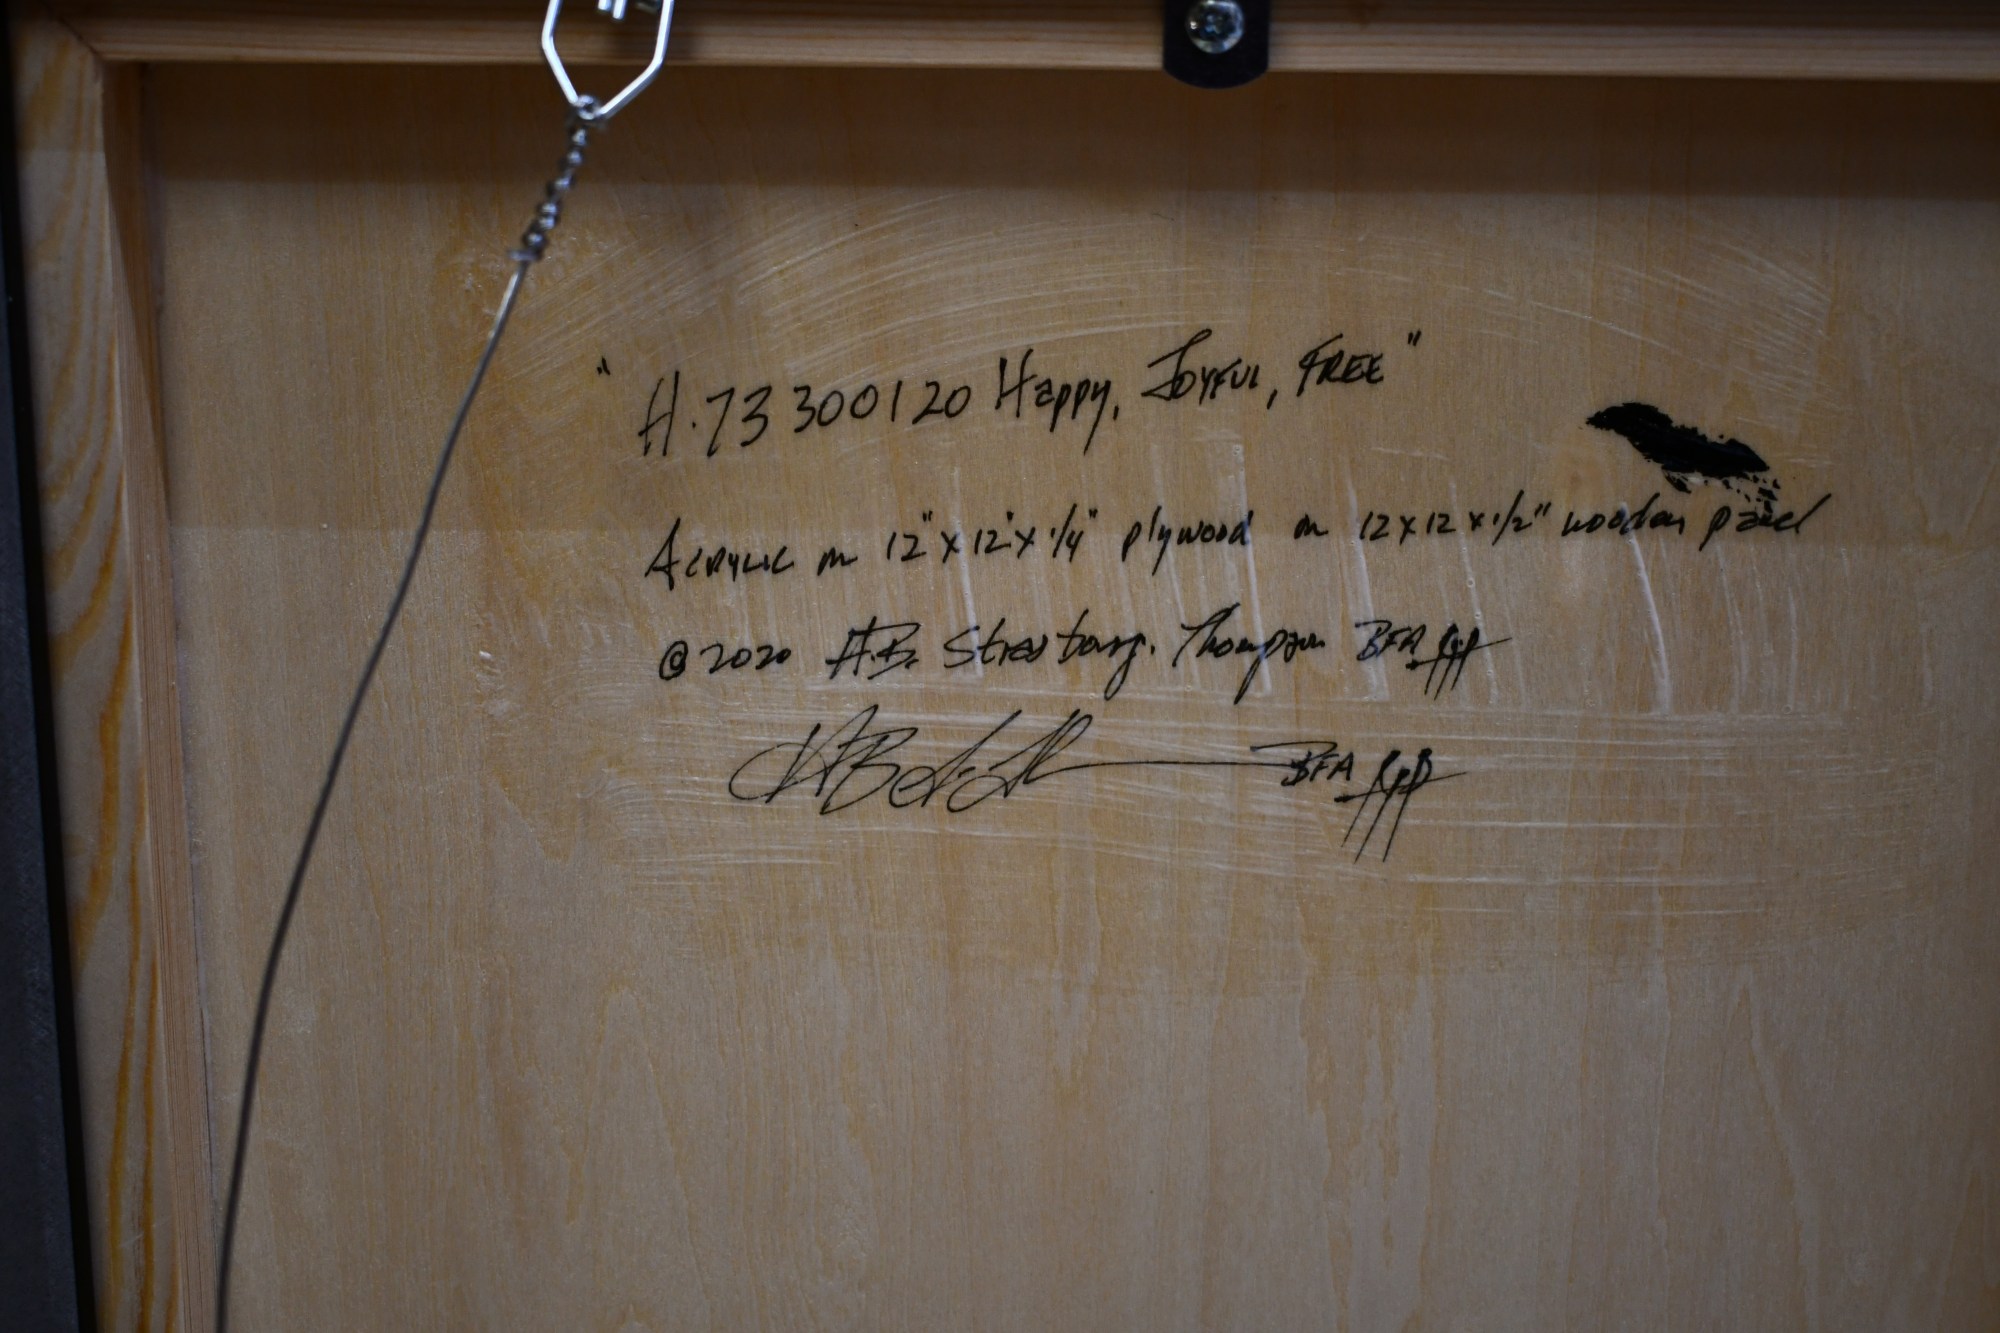 "H.73300120 Happy, JOYFUL, FREE"
ACRYLIC on 12" x 12" x 1/4" plywood on 12 x 12 x 1/2" wooden panel
© 2020 A.B. Strasbourg. Thompson BFA
BFA